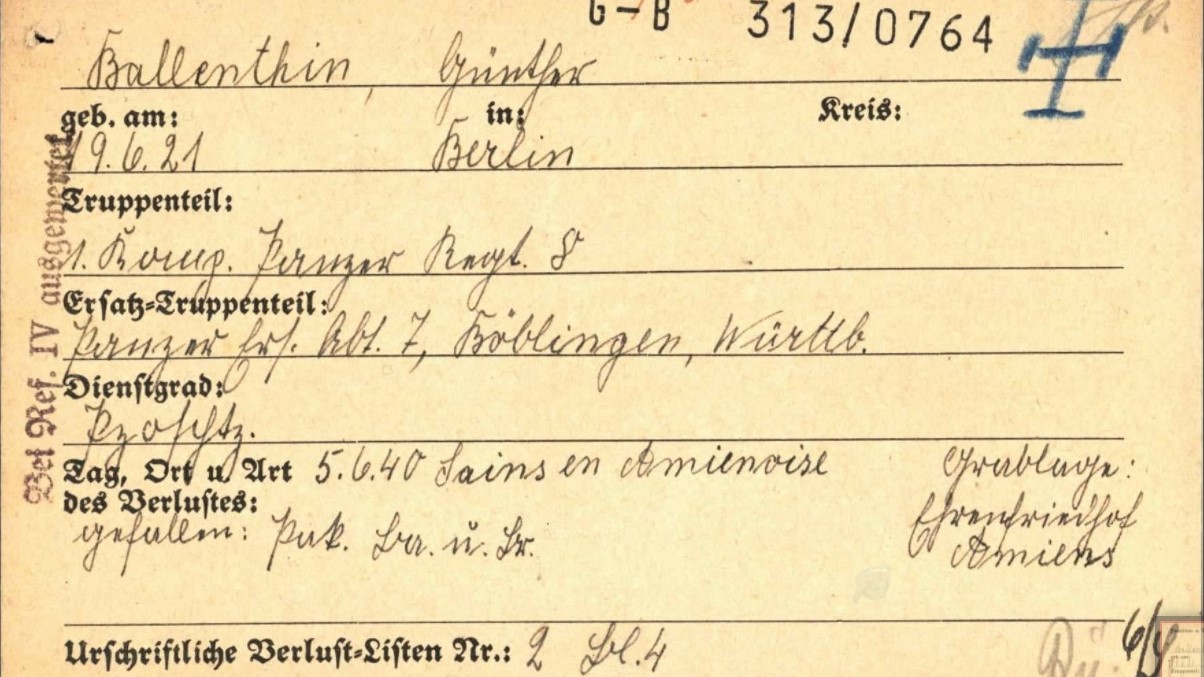 G-B 313/0764
Ballenthin, Günther
geb. am: in: Kreis:
19.6.21 Berlin
Truppenteil:
1. Komp. Panzer Regt. 8
Ersatz-Truppenteil:
Panzer Ers. Abt. 7, Böblingen, Württb.
Dienstgrad:
Pz.schtz.
Tag, Ort u. Art 5.6.40 Sains en Amienoise Grablage:
des Verlustes: Ehrenfriedhof
gefallen: Pak. Ba. u. Br. Amiens
Urschriftliche Verlust-Listen Nr.: 2 Bl. 4
Bei Ref. IV ausgewertet